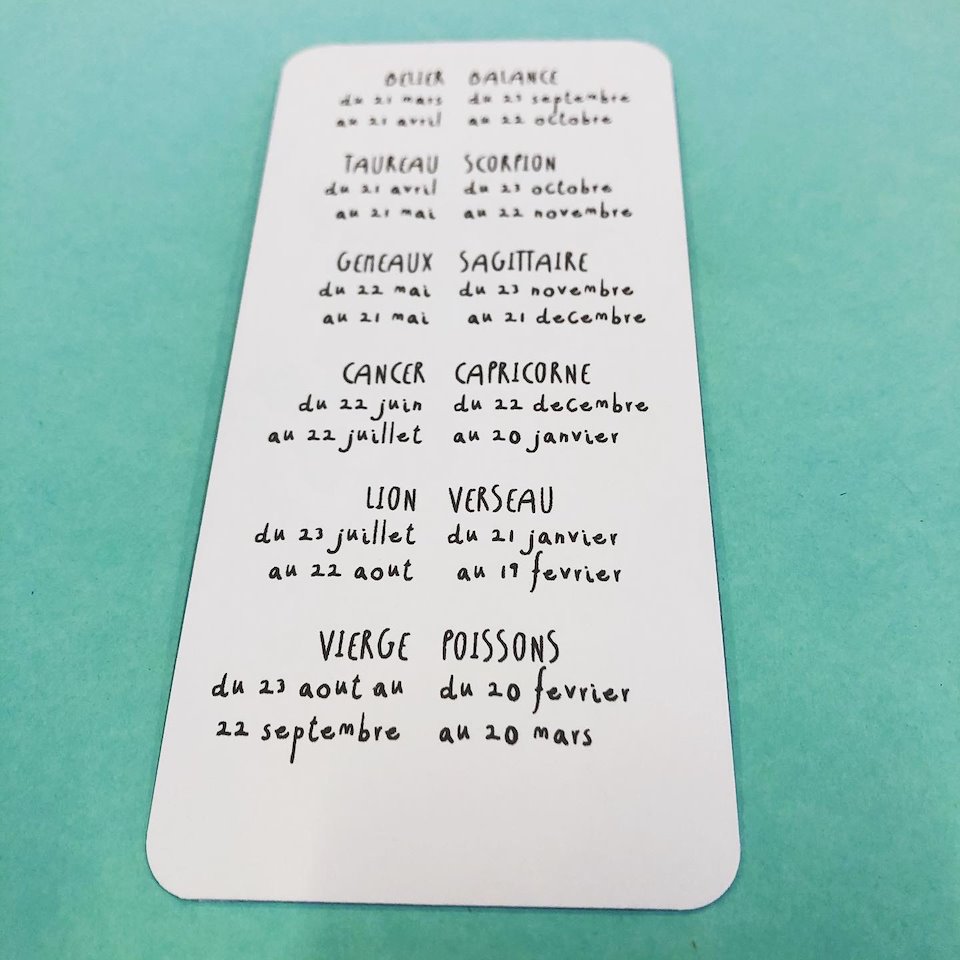 BELIER
du 21 mars
au 21 avril
TAUREAU
du 21 avril
au 21 mai
GEMEAUX
du 22 mai
au 21 mai
CANCER
du 22 juin
au 22 juillet
LION
du 23 juillet
au 22 aout
VIERGE
du 23 aout au
22 septembre
BALANCE
du 23 septembre
au 22 octobre
SCORPION
du 23 octobre
au 22 novembre
SAGITTAIRE
du 23 novembre
au 21 decembre
CAPRICORNE
du 22 decembre
au 20 janvier
VERSEAU
du 21 janvier
au 19 fevrier
POISSONS
du 20 fevrier
au 20 mars